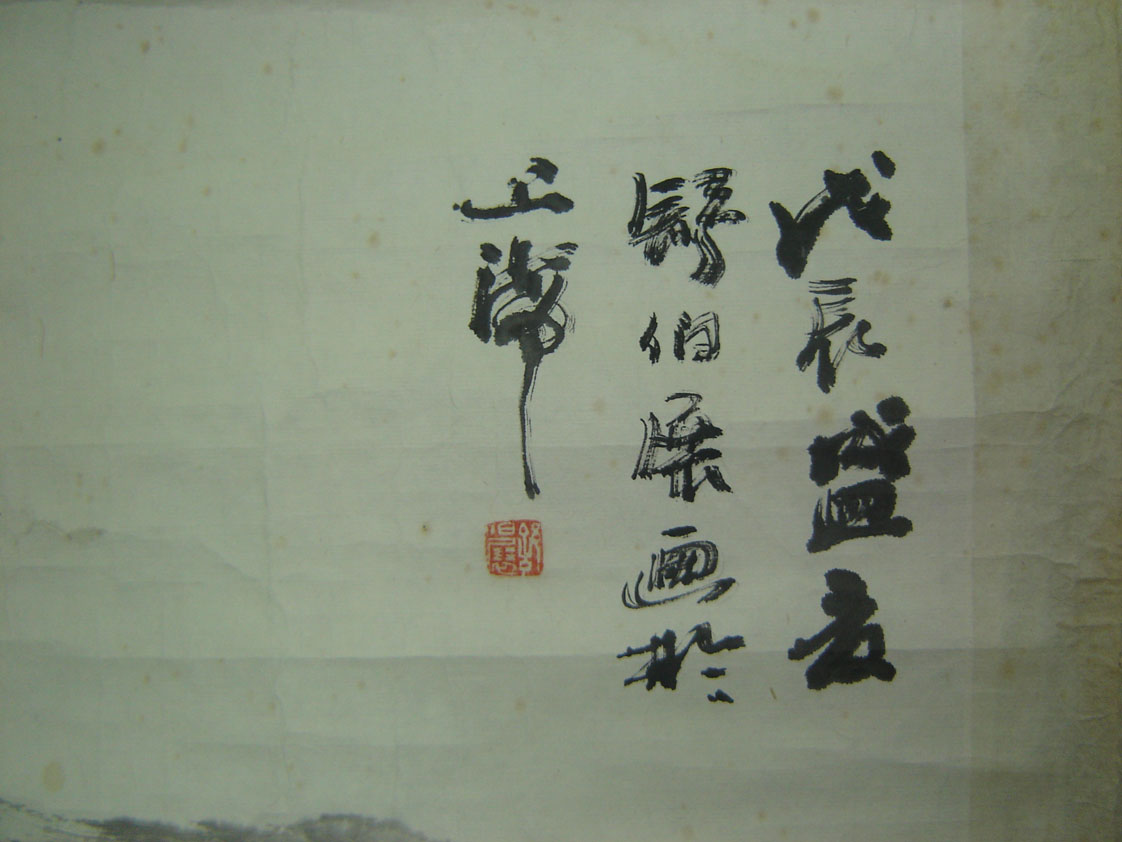 戊辰盛夏
舒伯展画於
上海